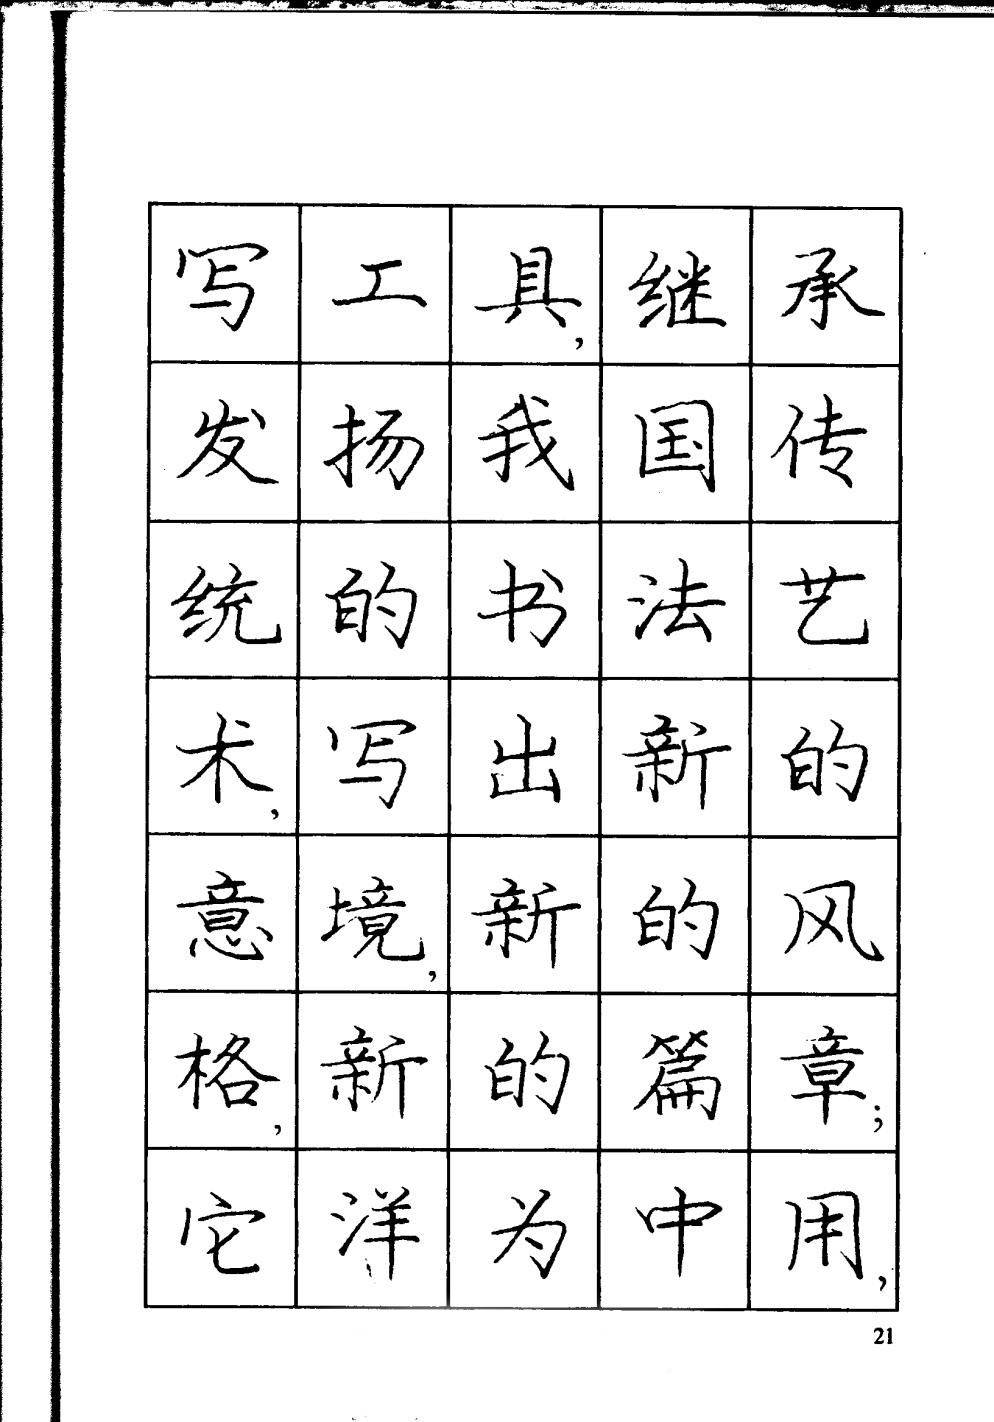 写工具,继承
发扬我国传
统的书法艺
术,写出新的
意境,新的风
格,新的篇章;
它洋为中用,
21